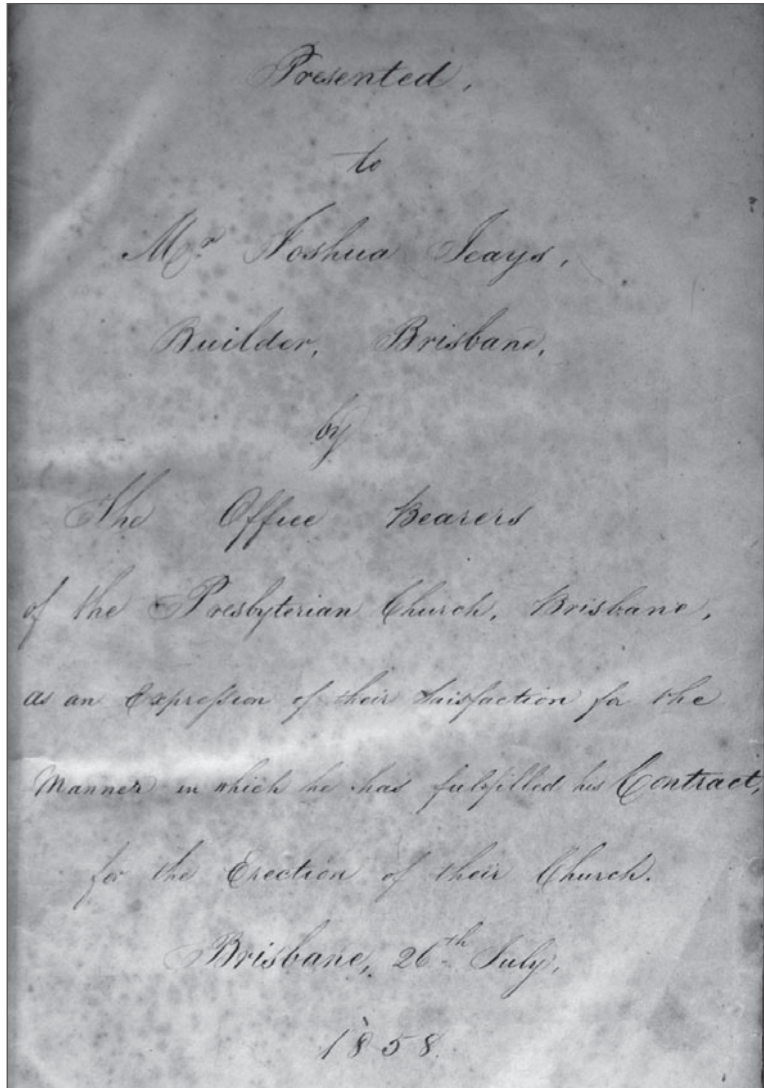 Presented,
to
Mr Joshua Jeays,
Builder, Brisbane,
by
The Office Bearers
of the Presbyterian Church, Brisbane,
as an Expression of their Saisfaction for the
Manner in which he has fulfilled his Contract,
for the Erection of their Church.
Brisbane, 26th July,
1858.